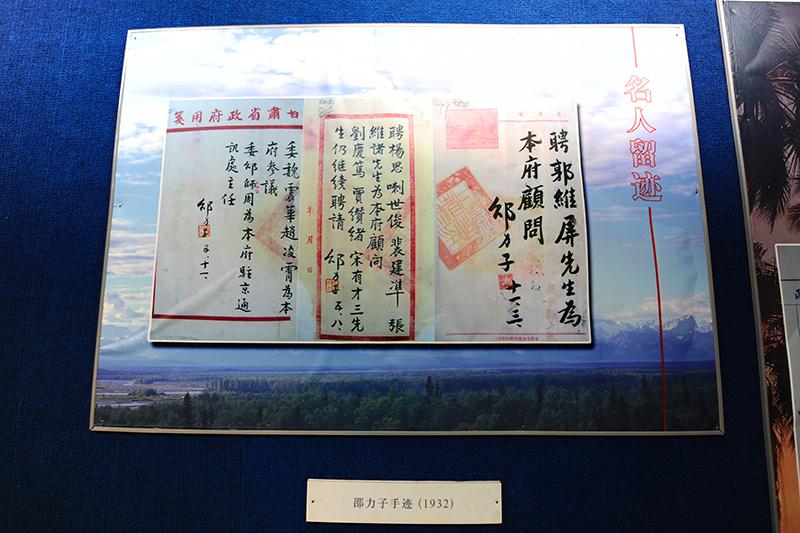 名人留迹
聘郭維屏先生為
本府顧問
邵力子 十一、三、
聘楊思 喇世俊 裴建準 張
維諾先生為本府顧问
劉慶篤 賈纘緒 宋有才三先
生仍继续聘請
邵力子 五、八、
甘肅省政府用箋
委魏震華趙凌霄為本
府參議
委邹師周為本府駐京通
訊處主任
邵力子 五、十一、
年 月 日
邵力子手迹（1932）